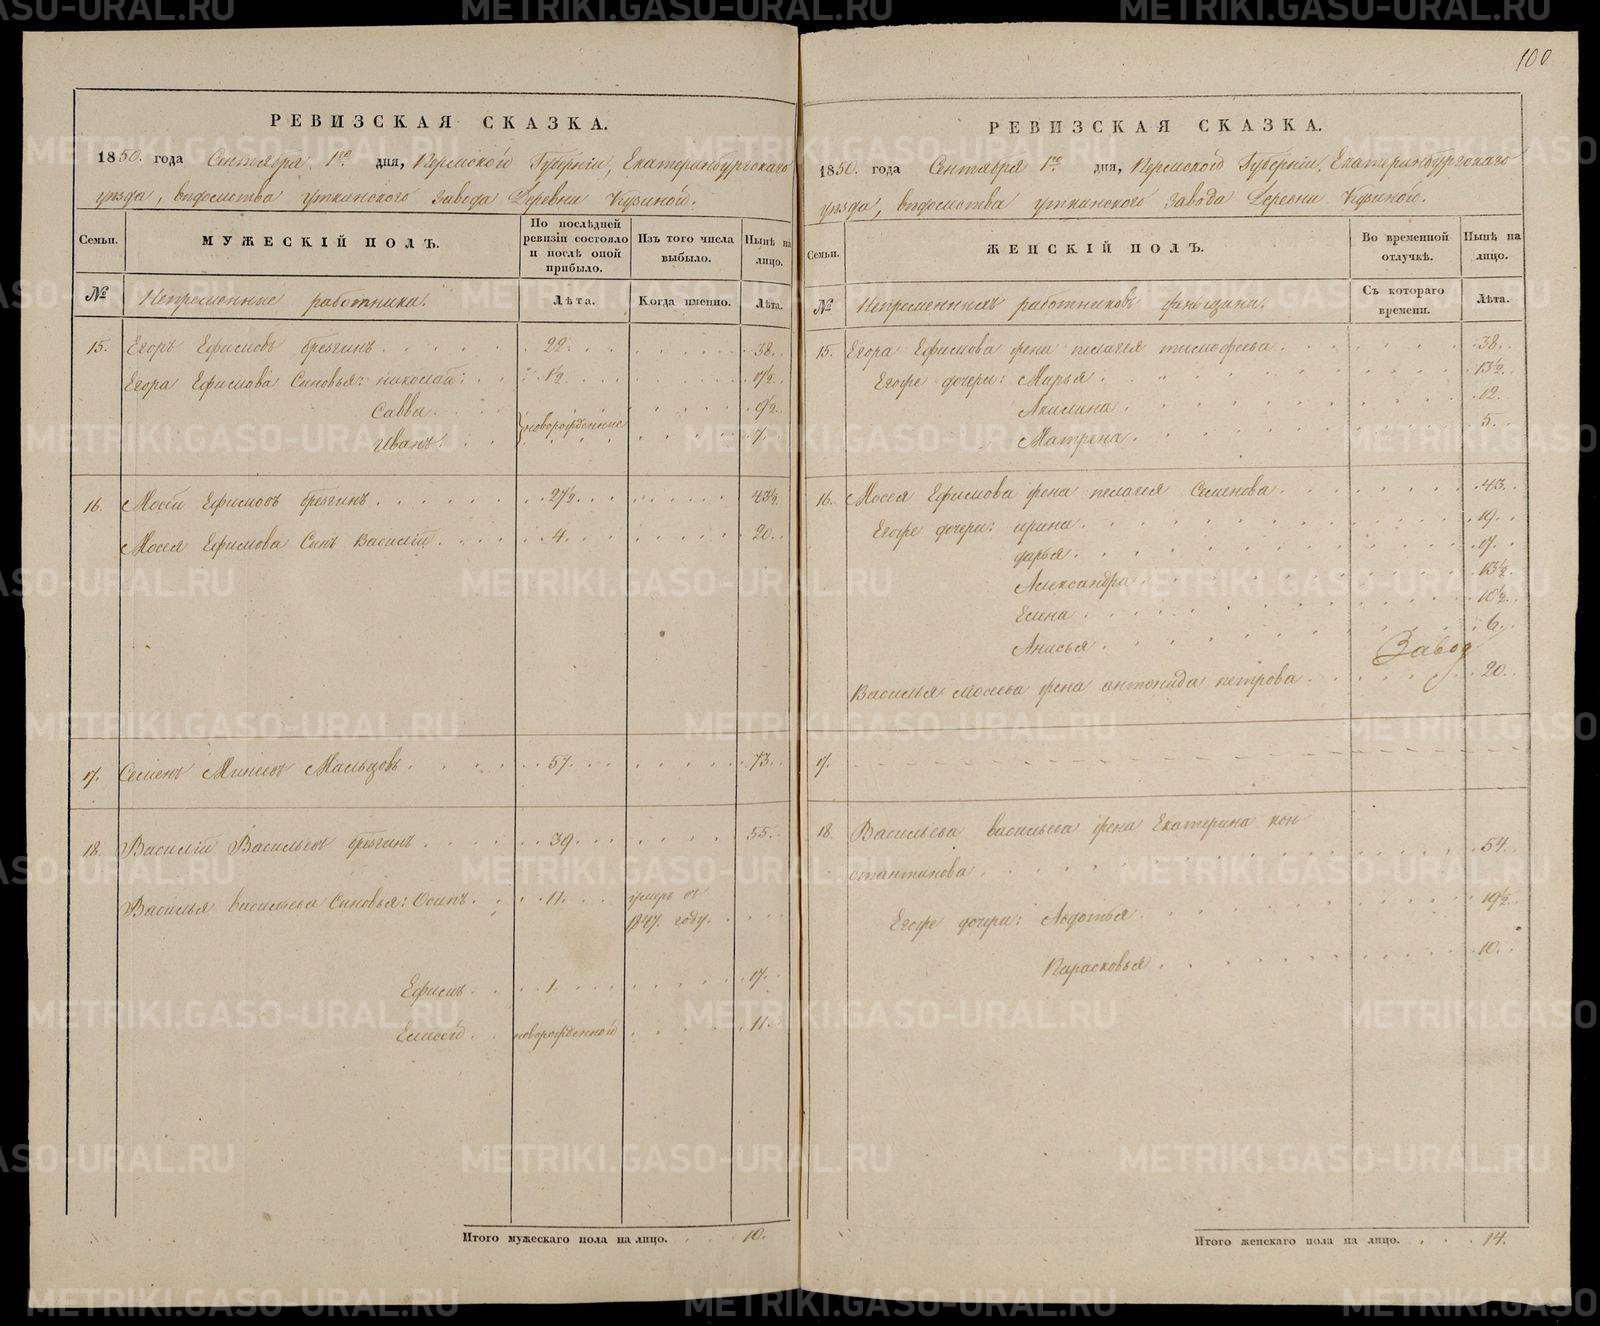 100
РЕВИЗСКАЯ СКАЗКА.
1850. года Сентября 1го дня, Пермской Губерніи, Екатеринбургскаго
уѣзда, вѣдомства уткинскаго Завода Деревни Кузиной.
Семьи. МУЖЕСКІЙ ПОЛЪ. По послѣдней ревизіи состояло и послѣ оной прибыло. Изъ того числа выбыло. Нынѣ на лицо.
№ Непременные работники. Лѣта. Когда именно. Лѣта.
15. Егоръ Ефимовъ 22. 38.
Егора Ефимова Сыновья: николай: 1½ 17½.
Савва новорожденные 9½.
Иванъ. 7.
16. Мосей Ефимовъ 27½. 43½.
Мосея Ефимова Сынъ Василій 4. 20.
17. Семенъ Минеевъ Мальцовъ. 57. 73.
18. Василій Васильевъ 39. 55.
Василья васильева Сыновья: Осипъ. 11. умеръ въ
1847. году.
Ефимъ. 1. 17.
Елисей. новорожденной 11.
Итого мужескаго пола на лицо. 10.
РЕВИЗСКАЯ СКАЗКА.
1850. года Сентября 1го дня, Пермской Губерніи, Екатеринбургскаго
уѣзда, вѣдомства уткинскаго Завода Деревни Кузиной.
Семьи. ЖЕНСКІЙ ПОЛЪ. Во временной отлучкѣ. Нынѣ на лицо.
№ Непременныхъ работниковъ женщины. Съ котораго времени. Лѣта.
15. Егора Ефимова жена пелагея тимофеева. 38.
Егоже дочери: Марья. 13½.
Акилина. 12.
Матрена. 5.
16. Мосея Ефимова жена пелагея Семенова. 43.
Егоже дочери: ирина. 19.
дарья. 17.
Александра. 13½.
Елена. 10½.
Анисья. 6.
Завод
Василья мосеева жена антонида петрова. 20.
17.
18. Васильева васильева жена Екатерина кон
стантинова. 54.
Егоже дочери: Авдотья. 19½.
Парасковья. 10.
Итого женскаго пола на лицо. 14.
METRIKI.GASO-URAL.RU